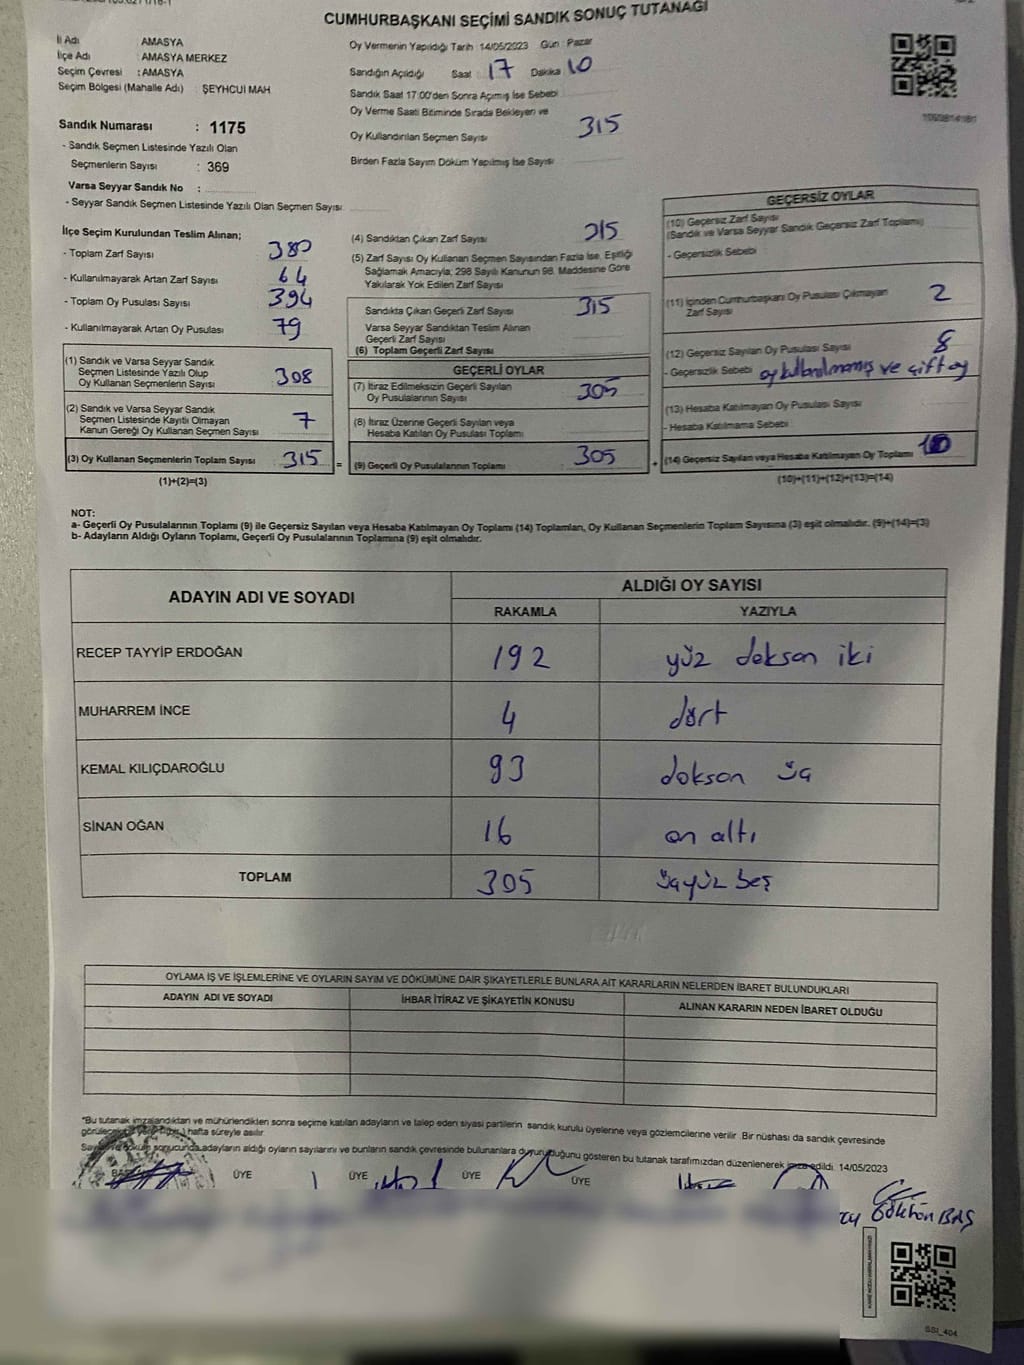 CUMHURBAŞKANI SEÇİMİ SANDIK SONUÇ TUTANAĞI
İl Adı AMASYA
İlçe Adı : AMASYA MERKEZ
Seçim Çevresi : AMASYA
Seçim Bölgesi (Mahalle Adı) : ŞEYHCUİ MAH
Oy Vermenin Yapıldığı Tarih 14/05/2023 Gün : Pazar
Sandığın Açıldığı Saat 17 Dakika 10
Sandık Saat 17:00'den Sonra Açımış İse Sebebi
Oy Verme Saati Bitiminde Sırada Bekleyen ve
Oy Kullandırılan Seçmen Sayısı 315
Birden Fazla Sayım Döküm Yapılmış İse Sayısı
Sandık Numarası : 1175
- Sandık Seçmen Listesinde Yazılı Olan
Seçmenlerin Sayısı : 369
Varsa Seyyar Sandık No :
- Seyyar Sandık Seçmen Listesinde Yazılı Olan Seçmen Sayısı:
İlçe Seçim Kurulundan Teslim Alınan;
- Toplam Zarf Sayısı 380
- Kullanılmayarak Artan Zarf Sayısı 64
- Toplam Oy Pusulası Sayısı 394
- Kullanılmayarak Artan Oy Pusulası 79
(1) Sandık ve Varsa Seyyar Sandık
Seçmen Listesinde Yazılı Olup
Oy Kullanan Seçmenlerin Sayısı 308
(2) Sandık ve Varsa Seyyar Sandık
Seçmen Listesinde Kayıtlı Olmayan
Kanun Gereği Oy Kullanan Seçmen Sayısı 7
(3) Oy Kullanan Seçmenlerin Toplam Sayısı 315 =
(1)+(2)=(3)
(4) Sandıktan Çıkan Zarf Sayısı 315
(5) Zarf Sayısı Oy Kullanan Seçmen Sayısından Fazla İse, Eşitliği
Sağlamak Amacıyla, 298 Sayılı Kanunun 98. Maddesine Göre
Yakılarak Yok Edilen Zarf Sayısı
Sandıkta Çıkan Geçerli Zarf Sayısı 315
Varsa Seyyar Sandıktan Teslim Alınan
Geçerli Zarf Sayısı
(6) Toplam Geçerli Zarf Sayısı
GEÇERLİ OYLAR
(7) İtiraz Edilmeksizin Geçerli Sayılan
Oy Pusulalarının Sayısı 305
(8) İtiraz Üzerine Geçerli Sayılan veya
Hesaba Katılan Oy Pusulası Toplamı
(9) Geçerli Oy Pusulalarının Toplamı 305 +
GEÇERSİZ OYLAR
(10) Geçersiz Zarf Sayısı
(Sandık ve Varsa Seyyar Sandık Geçersiz Zarf Toplamı)
- Geçersizlik Sebebi
(11) İçinden Cumhurbaşkanı Oy Pusulası Çıkmayan
Zarf Sayısı 2
(12) Geçersiz Sayılan Oy Pusulası Sayısı 8
- Geçersizlik Sebebi oy kullanılmamış ve çift oy
(13) Hesaba Katılmayan Oy Pusulası Sayısı
- Hesaba Katılmama Sebebi
(14) Geçersiz Sayılan veya Hesaba Katılmayan Oy Toplamı 10
(10)+(11)+(12)+(13)=(14)
NOT:
a- Geçerli Oy Pusulalarının Toplamı (9) ile Geçersiz Sayılan veya Hesaba Katılmayan Oy Toplamı (14) Toplamları, Oy Kullanan Seçmenlerin Toplam Sayısına (3) eşit olmalıdır. (9)+(14)=(3)
b- Adayların Aldığı Oyların Toplamı, Geçerli Oy Pusulalarının Toplamına (9) eşit olmalıdır.
ADAYIN ADI VE SOYADI ALDIĞI OY SAYISI
RAKAMLA YAZIYLA
RECEP TAYYİP ERDOĞAN 192 yüz doksan iki
MUHARREM İNCE 4 dört
KEMAL KILIÇDAROĞLU 93 doksan üç
SİNAN OĞAN 16 on altı
TOPLAM 305 üçyüz beş
OYLAMA İŞ VE İŞLEMLERİNE VE OYLARIN SAYIM VE DÖKÜMÜNE DAİR ŞİKAYETLERLE BUNLARA AİT KARARLARIN NELERDEN İBARET BULUNDUKLARI
ADAYIN ADI VE SOYADI İHBAR İTİRAZ VE ŞİKAYETİN KONUSU ALINAN KARARIN NEDEN İBARET OLDUĞU
*Bu tutanak imzalandıktan ve mühürlendikten sonra seçime katılan adayların ve talep eden siyasi partilerin sandık kurulu üyelerine veya gözlemcilerine verilir. Bir nüshası da sandık çevresinde
hafta süreyle asılır
sonucunda adayların aldığı oyların sayılarını ve bunların sandık çevresinde bulunanlara duyurulduğunu gösteren bu tutanak tarafımızdan düzenlenerek imza edildi. 14/05/2023
ÜYE ÜYE ÜYE ÜYE
Gökhan BAŞ
SSI_404